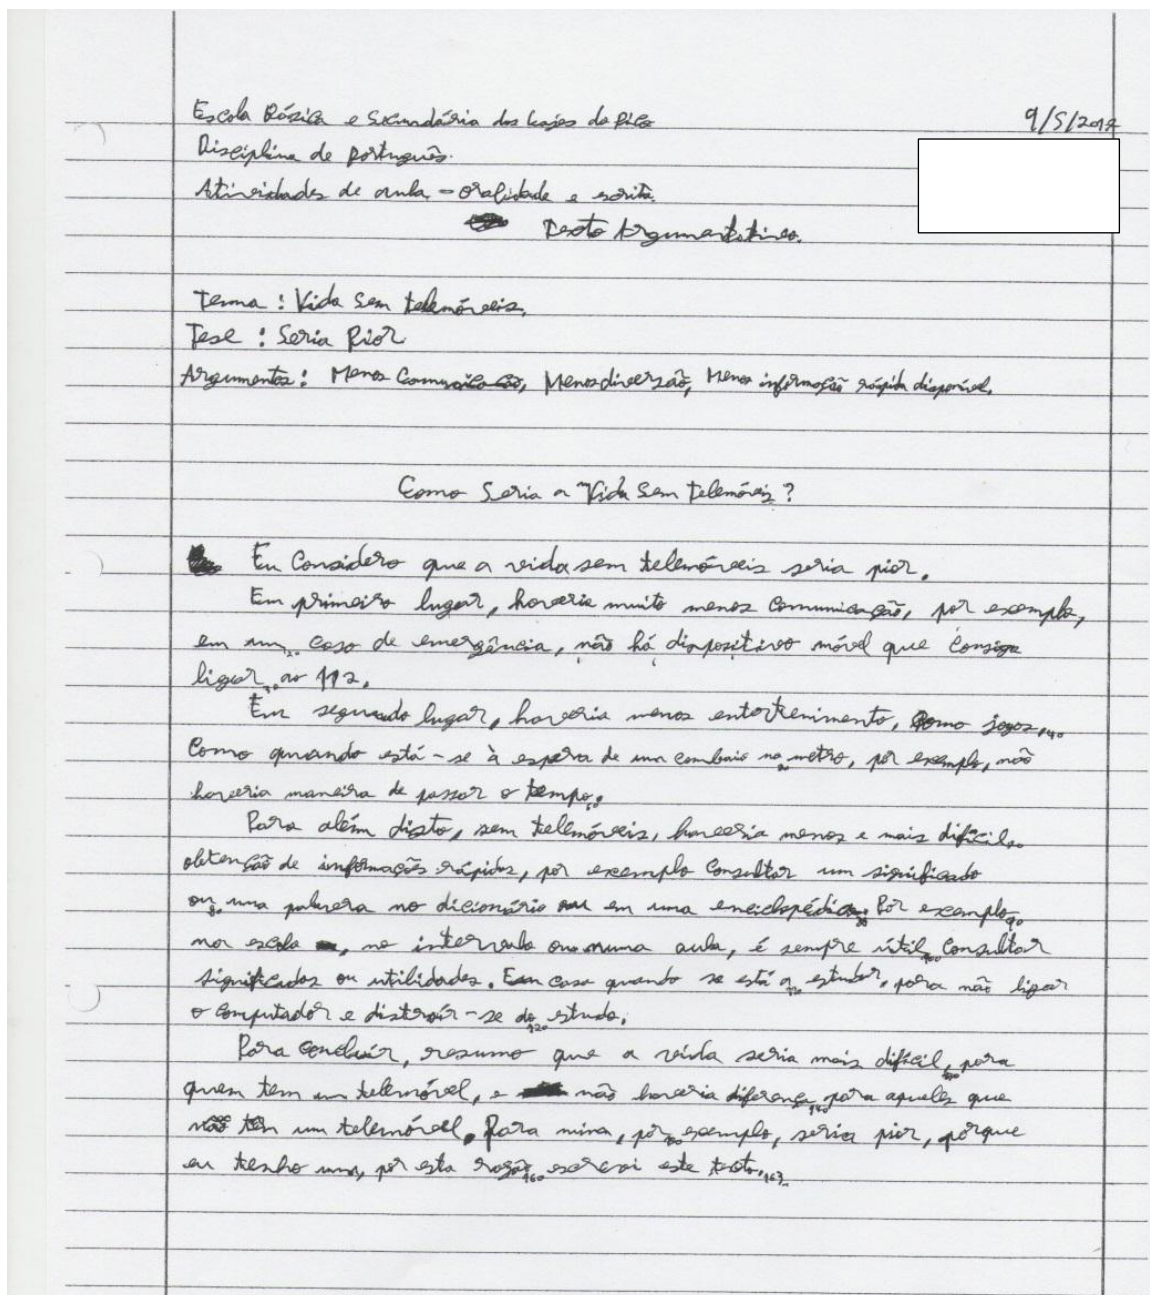 Escola Básica e Secundária das Lajes do Pico 9/5/2017
Disciplina de português.
Atividades de aula - oralidade e escrita.
Texto Argumentativo.
Tema : Vida Sem telemóveis.
Tese : Seria Pior
Argumentos: Menos Comunicação, Menos diversão, Menos informação rápida disponível.
Como Seria a Vida Sem telemóveis?
Eu Considero que a vida sem telemóveis seria pior.
Em primeiro lugar, haveria muito menos Comunicação, por exemplo,
em um caso de emergência, não há dispositivo móvel que Consiga
ligar ao 112.
Em segundo lugar, haveria menos entretenimento, Como jogos,40
Como quando está-se à espera de um comboio no metro, por exemplo, não
haveria maneira de passar o tempo.
Para além disto, sem telemóveis, haveria menos e mais difícil
obtenção de informações rápidas, por exemplo Consultar um significado
ou uma palavra no dicionário ou em uma enciclopédia. Por exemplo,90
na escola, no intervalo ou numa aula, é sempre útil100 Consultar
significados ou utilidades. Em casa quando se está a estudar, para não ligar
o Computador e distrair-se do120 estudo.
Para concluir, resumo que a vida seria mais difícil, para
quem tem um telemóvel, e não haveria diferença140 para aqueles que
não têm um telemóvel. Para mim, por exemplo, seria pior, porque
eu tenho um, por esta razão160 escrevi este texto.163